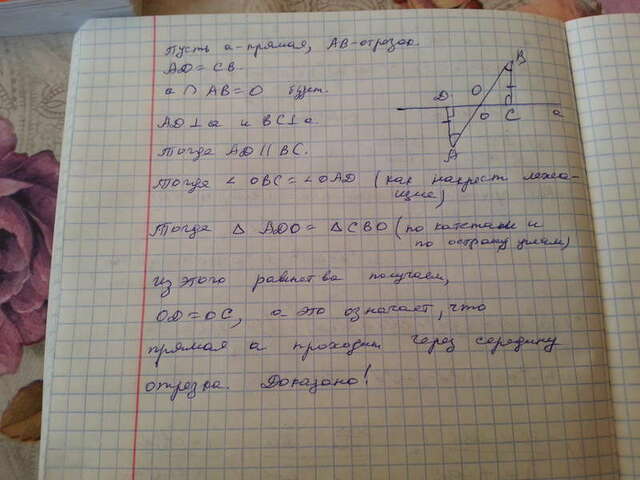 Пусть a-прямая, AB-отрезок.
AD = CB.
a ∩ AB = O будет.
AD ⊥ a и BC ⊥ a.
Тогда AD || BC.
Тогда ∠ OBC = ∠ OAD (как накрест лежа-
щие)
Тогда △ ADO = △ CBO (по катетам и
по острому углам)
из этого равенства получаем,
OD = OC, а это означает, что
прямая a проходит через середину
отрезка. Доказано!
B
D
O
O
C
a
A